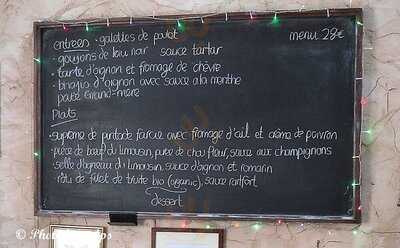 entrées · galettes de poulot menu 28€
· goujons de lieu noir sauce tartar
· tarte d'oignon et fromage de chèvre
· d'oignon avec sauce a la menthe
Grand-mère
Plats
· supreme de pintade farcie avec fromage d'ail et crème de poivron
· pièce de bœuf du limousin, puree de chou fleur, sauce aux champignons
· selle d'agneau du limousin, sauce d'oignon et romarin
· roti de filet de truite bio (organic), sauce raifort
dessert
© Photo